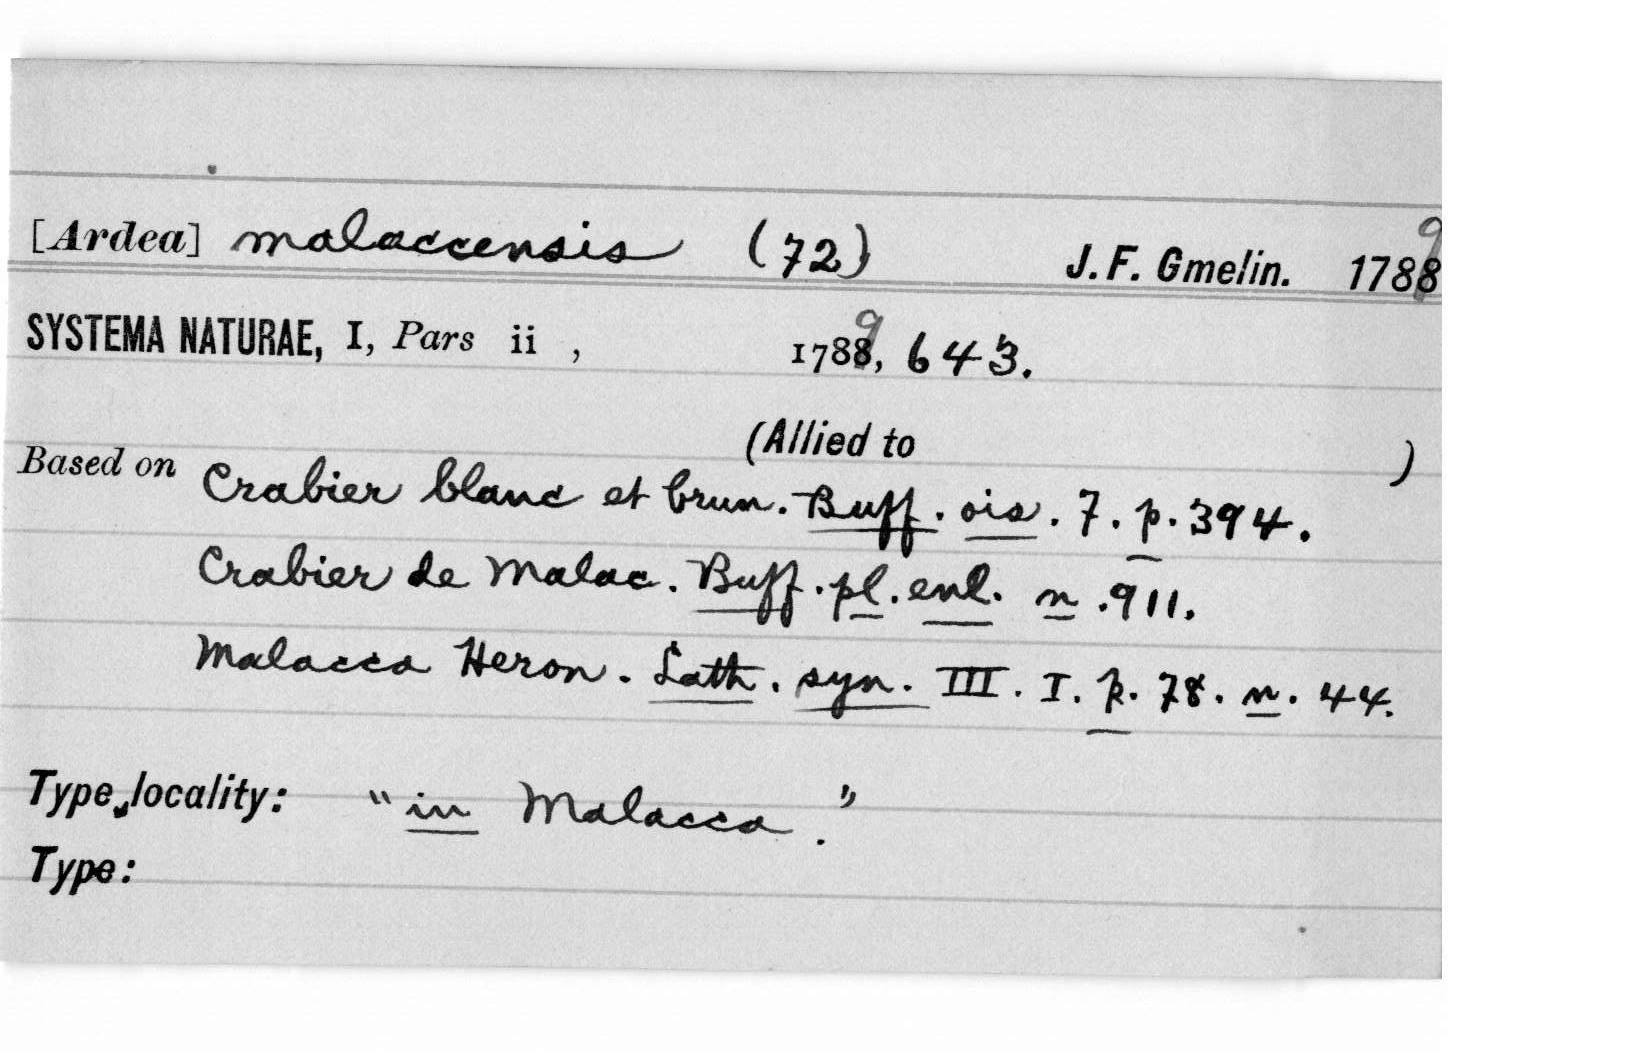 [Ardea] malaccensis (72) J. F. Gmelin. 1789
SYSTEMA NATURAE, I, Pars ii , 1789, 643.
(Allied to )
Based on Crabier blanc et brun. Buff. ois. 7. p. 394.
Crabier de Malac. Buff. pl. enl. n. 911.
Malacca Heron. Lath. syn. III. I. p. 78. n. 44.
Type locality: "in Malacca."
Type: